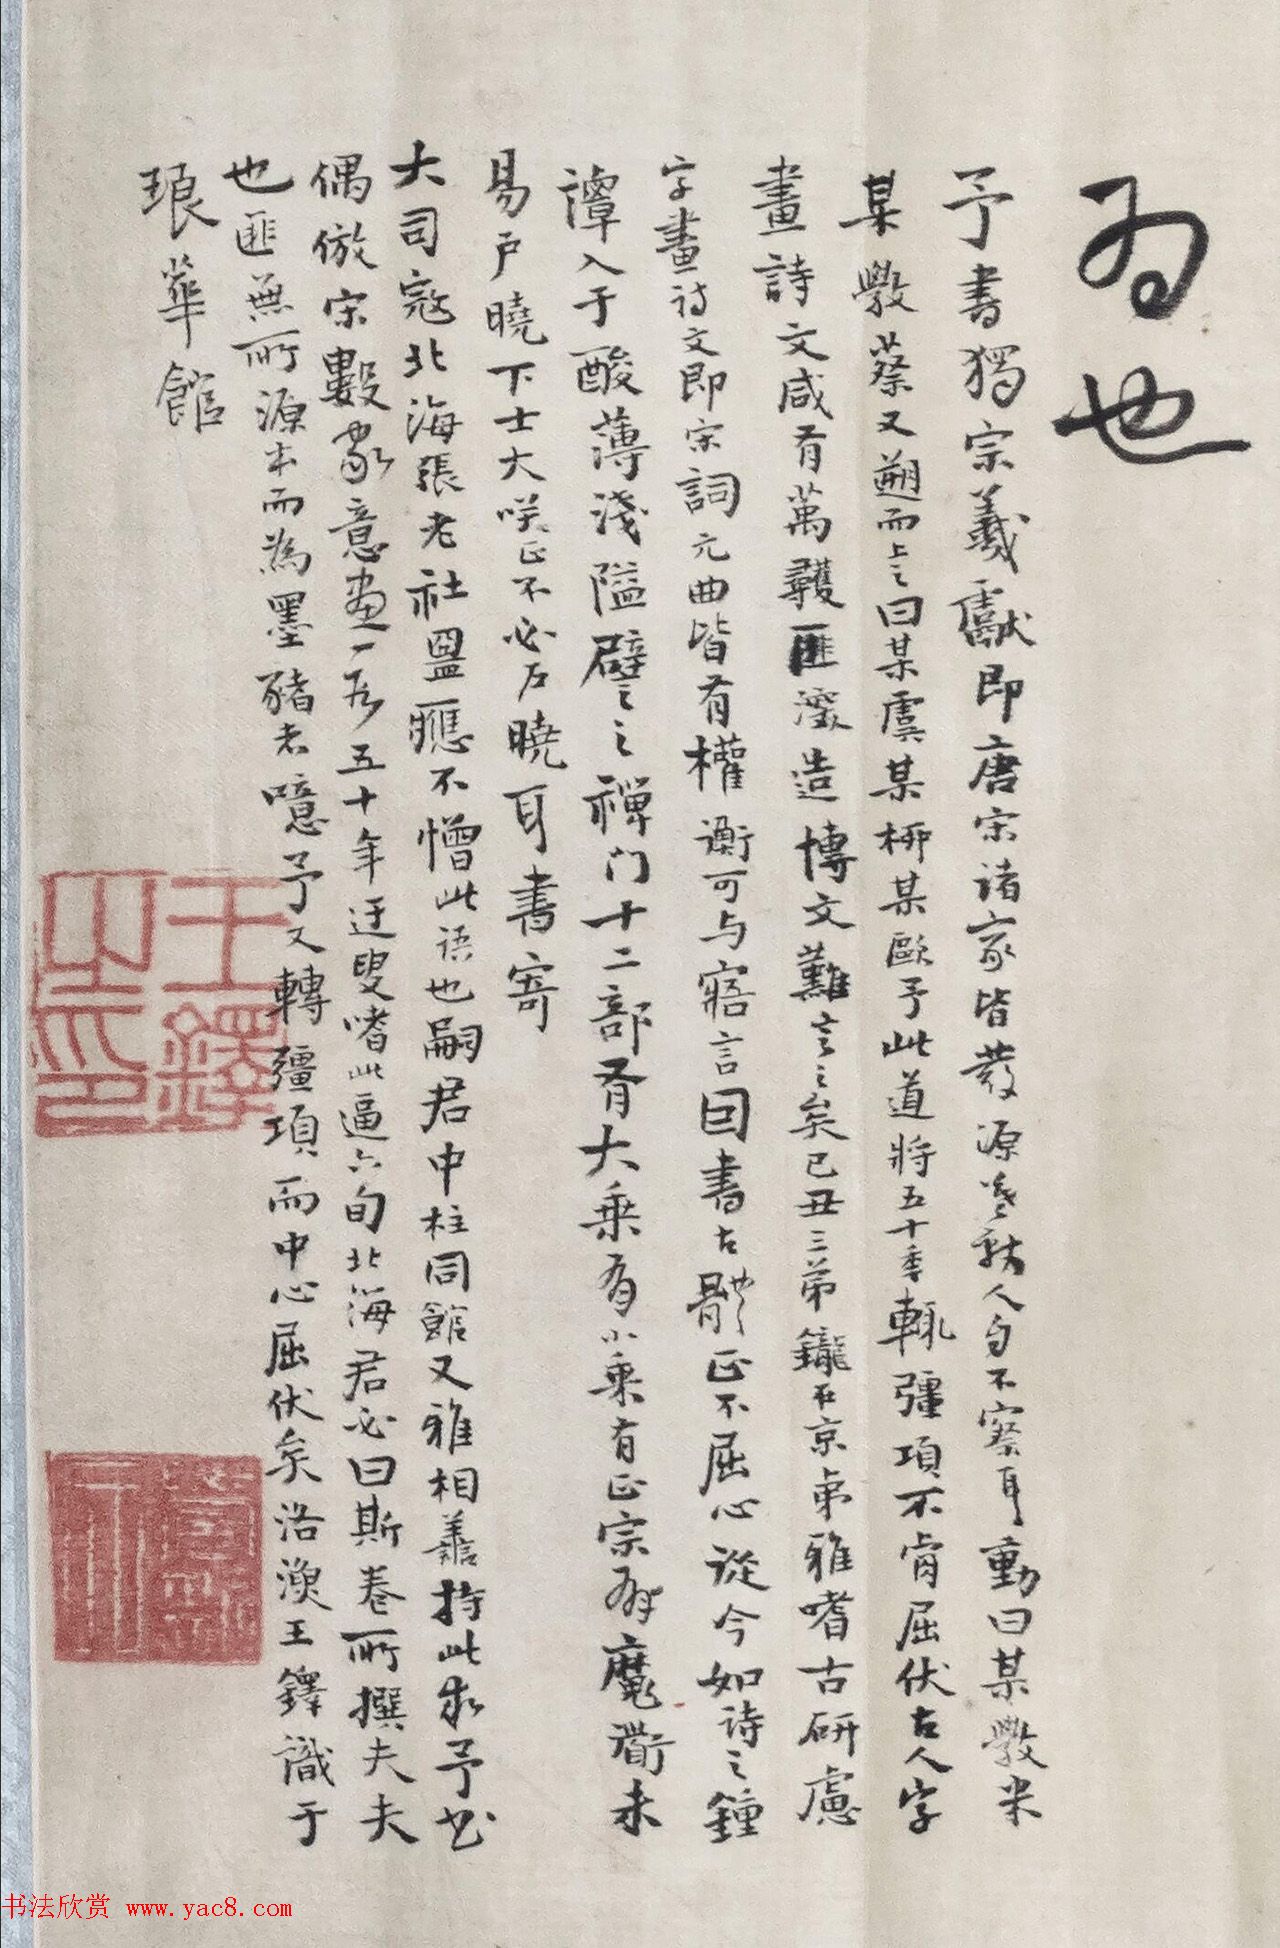 為也
予書獨宗羲獻即唐宋諸家皆發源羲獻人自不察耳動曰某斆米
某斆蔡又遡而上之曰某虞某柳某歐予此道將五十季輒彊項不肯屈伏古人字
畫詩文咸有萬彟匪溦造博文難言之矣己丑三弟鑨在京弟雅嗜古研慮
字畫詩文即宋詞元曲皆有權衡可与寤言曰書古體也正不屈心從今如詩之鍾
譚入于酸薄淺隘譬之禪门十二部有大乘有小乘有正宗有魔衜未
易戶曉下士大咲正不必戶曉耳書寄
大司寇北海張老社盟應不憎此語也嗣君中柱同館又雅相善持此求予書
偶倣宋數家意畫一段五十年迂叟嗜此逼六旬北海君必曰斯卷所撰夫夫
也匪無所源本而為墨豬者噫予又轉彊項而中心屈伏矣洛漁王鐸識于
琅華館
王鐸之印
书法欣赏 www.yac8.com